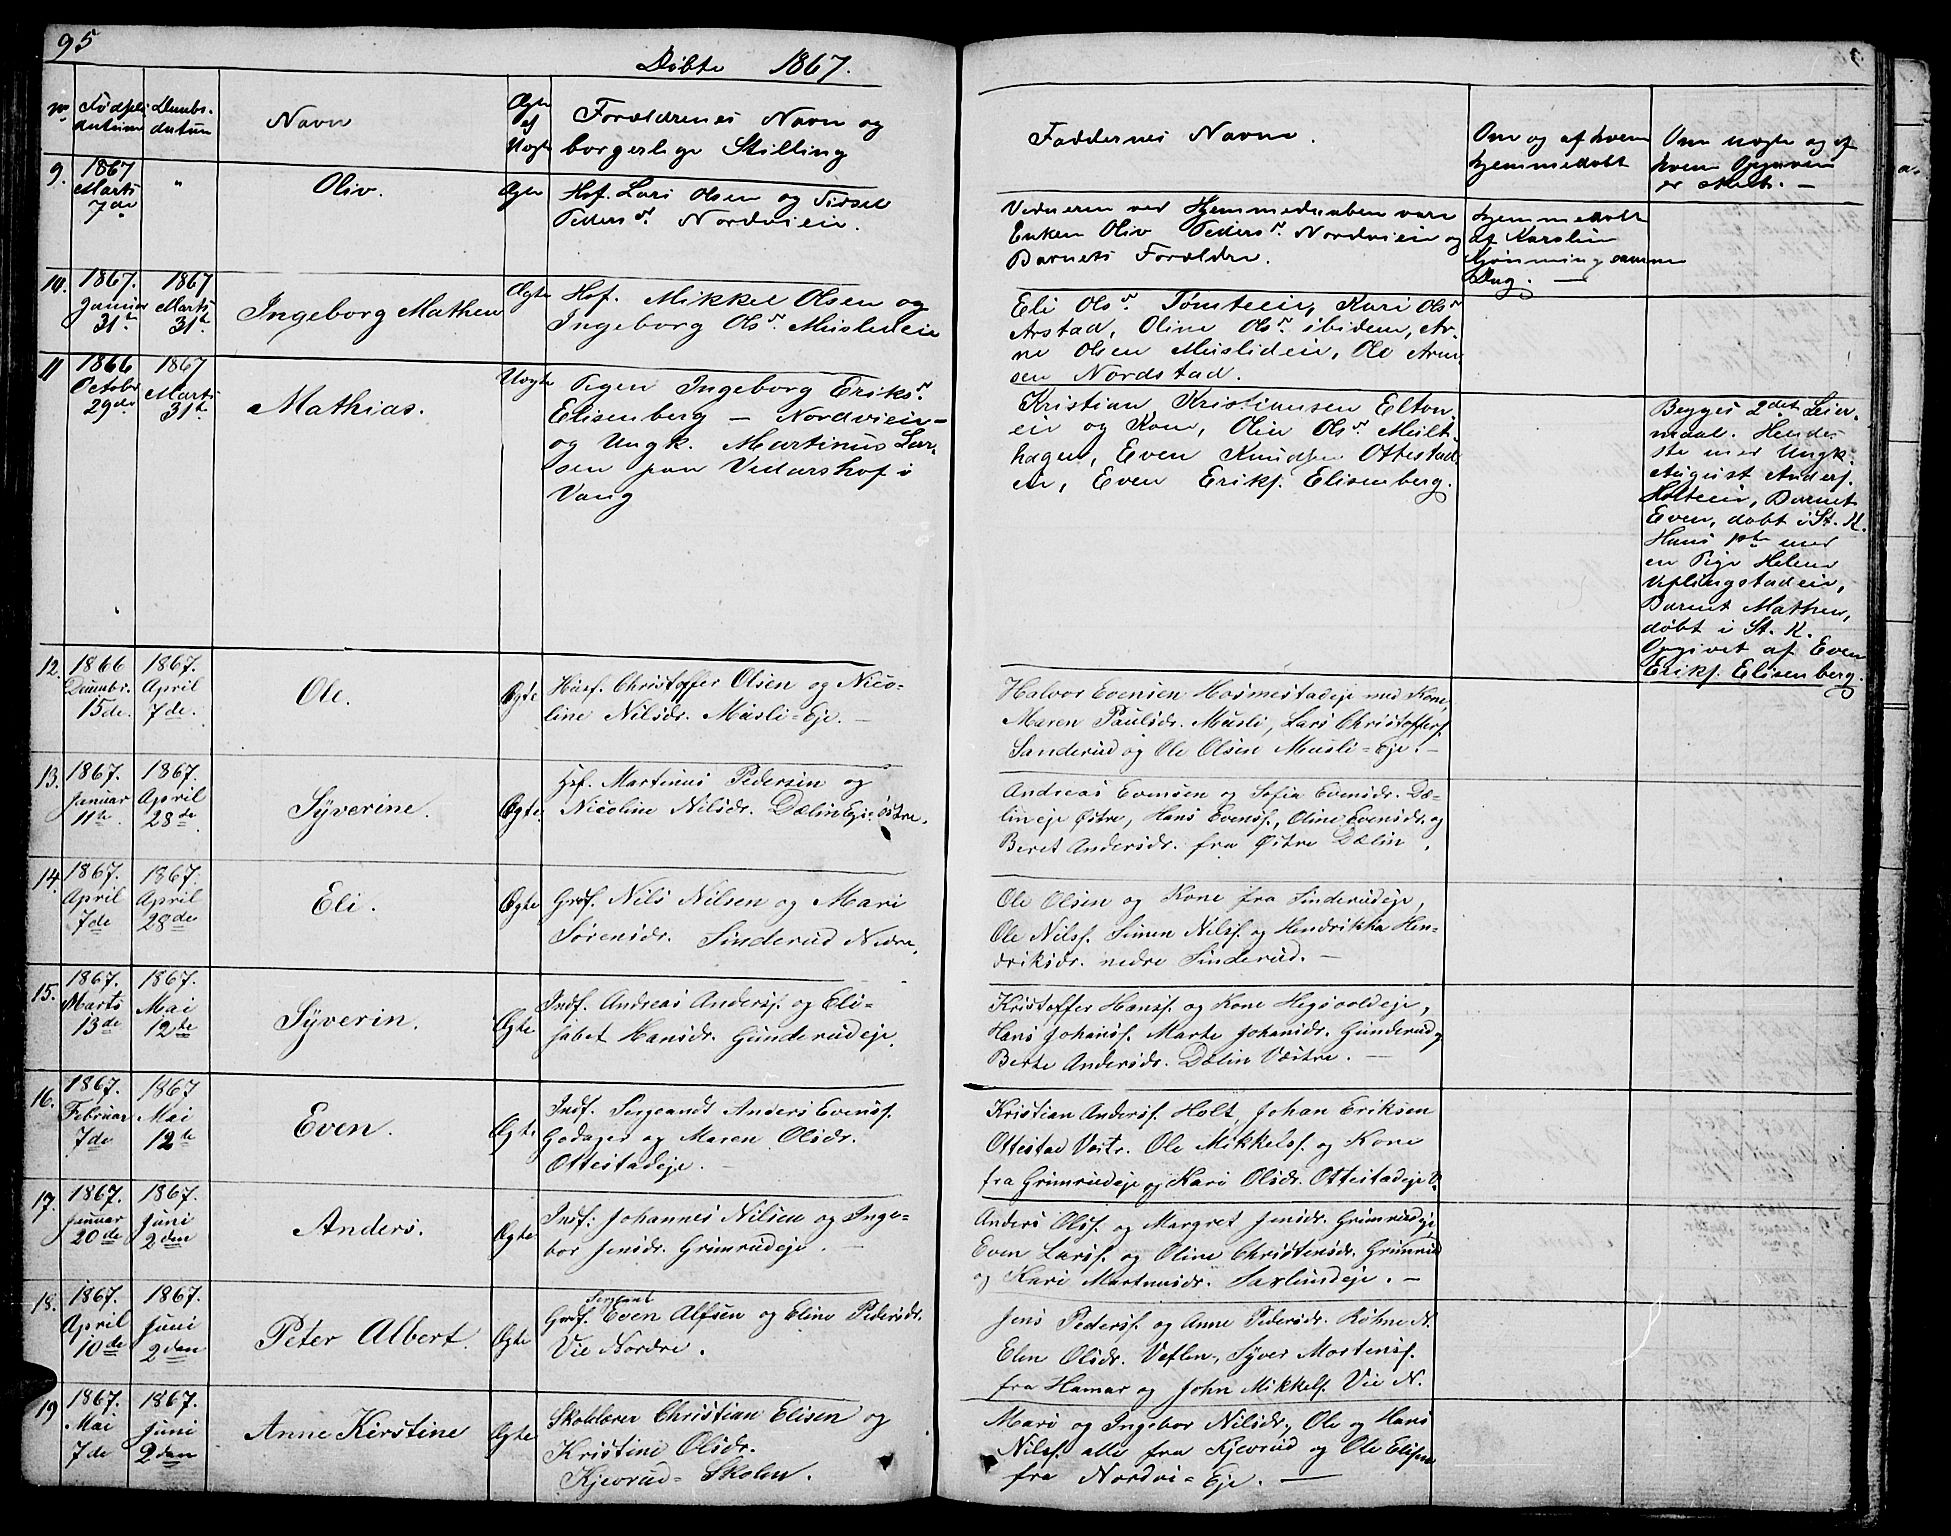 95
Døbte 1867.
No
Fødsels
datum
Daabs-
datum
Navn
Ægte
ell
Uægte
Forældrenes Navn og
borgerlige Stilling
Faddernes Navne.
Om og af hvem
hjemmedøbt
Om uægte og af
hvem Opgaven
er skeet. —
9.
1867
Marts
7de
"
Oliv.
Ægte
Hsf. Lars Olsen og Sidsel
Pedersdr. Nordvieie.
Vidneren ved Hjemmedaaben vare
Enken Oliv Pedersdr. Nordvieie og
Barnets Forældre.
Hjemmedøbt
af Karsten
Gjønning samme
Dag. —
10.
1867.
Januar
31te
1867
Marts
31te
Ingeborg Mathea
Ægte
Hsf. Mikkel Olsen og
Ingeborg Olsdr. Muslieeie
Eli Olsdr. Tomteeie, Kari Olsdr
Arstad, Oline Olsdr. ibidem, Ar-
ne Olsen Muslideie, Ole Arne-
sen Nordstad.
11
1866
October
29de
1867
Marts
31te
Mathias.
Uægte
Pigen Ingeborg Eriksdr.
Elisenberg — Nordvieie-
og Ungk. Martinus Lar-
sen paa Vidarshof i
Vang
Kristian Kristiansen Elton-
eie og Kone, Olea Olsdr. Muslt-
hagen, Even Knudsen Ottestad
eie, Even Eriks. Elisenberg.
Begges 2det Leier-
maal. Hendes
1ste med Ungk.
August Anders.
Holteeie, Barnet
Even, døbt i St. K.
Hans 1ste med
en Pige Helene
Veflingstadeie,
Barnet Mathea,
døbt i St. K.
Opgivet af Even
Eriks. Elisenberg.
12.
1866
Decembr.
15de.
1867.
April
7de.
Ole.
Ægte
Husf. Christoffer Olsen og Nico-
line Nilsdr. Musli-Eje. —
Halvor Evensen Hosmestadeje med Kone,
Maren Paulsdr. Musli, Lars Christoffers.
Sanderud og Ole Olsen Musli-Eje. —
13.
1867.
Januar
11te.
1867.
April
28de
Syverine.
Ægte.
Hsf. Martinus Pedersen og
Nicoline Nilsdr. Dælin Eje. Østre.
Andreas Evensen og Sofia Evensdr. Dæ-
lineje Østre, Hans Evens., Oline Evensdr. og
Beret Andersdr. fra Østre Dælin.
14.
1867.
April
7de
1867.
April
28de
Eli.
Ægte
Grf. Nils Nilsen og Mari
Sørensdr. Sinderud Nedre.
Ole Olsen og Kone fra Sinderudeje,
Ole Nils. Simen Nils. og Hendrikka Hen-
driksdr. nedre Sinderud. —
15.
1867.
Marts
13de
1867.
Mai
12te
Syverin.
Ægte
Indf. Andreas Anders. og Eli-
sabet Hansdr. Gunderudeje.
Kristoffer Hans. og Kone Hegsvoldeje,
Hans Johans. Marte Johansdr. Gunderud og
Berte Andersdr. Dælin Vestre. —
16.
1867.
Februar
7de
1867
Mai
12te
Even.
Ægte
Indf. Sergeandt Anders Evens.
Godager og Maren Olsdr.
Ottestadeje. —
Kristian Anders. Holt, Johan Eriksen
Ottestad Vestr. Ole Mikkels. og Kone
fra Grimrudeje og Kari Olsdr. Ottestadeje V.
17.
1867.
Januar
20de
1867.
Juni
2den
Anders.
Ægte
Indf: Johannes Nilsen og Inge-
bor Jensdr. Grimrudeje. —
Anders Ols. og Margret Jensdr. Grimrudeje,
Even Lars. og Oline Christensdr. Grimrud
og Kari Martinusdr. Saxlundeje. —
18.
1867.
April
10de
1867.
Juni
2den
Peter Albert.
Ægte
Sergeant
Grdf. Even Alfsen og Eline Pedersdr.
Vie Nordre.
Jens Peders. og Anne Pedersdr. Røhne N.
Elen Olsdr. Veflen, Syver Mortens.
fra Hamar og John Mikkels. Vie N.
19
1867.
Mai
7de
1867.
Juni
2den
Anne Kirstine
Ægte
Skolelærer Christian Elisen og
Kristine Olsdr.
Kjevrud- Skolen.
Mari og Ingebor Nilsdr., Ole og Hans
Nils. alle fra Kjevrud og Ole Elisen
fra Nordvi-Eje. —